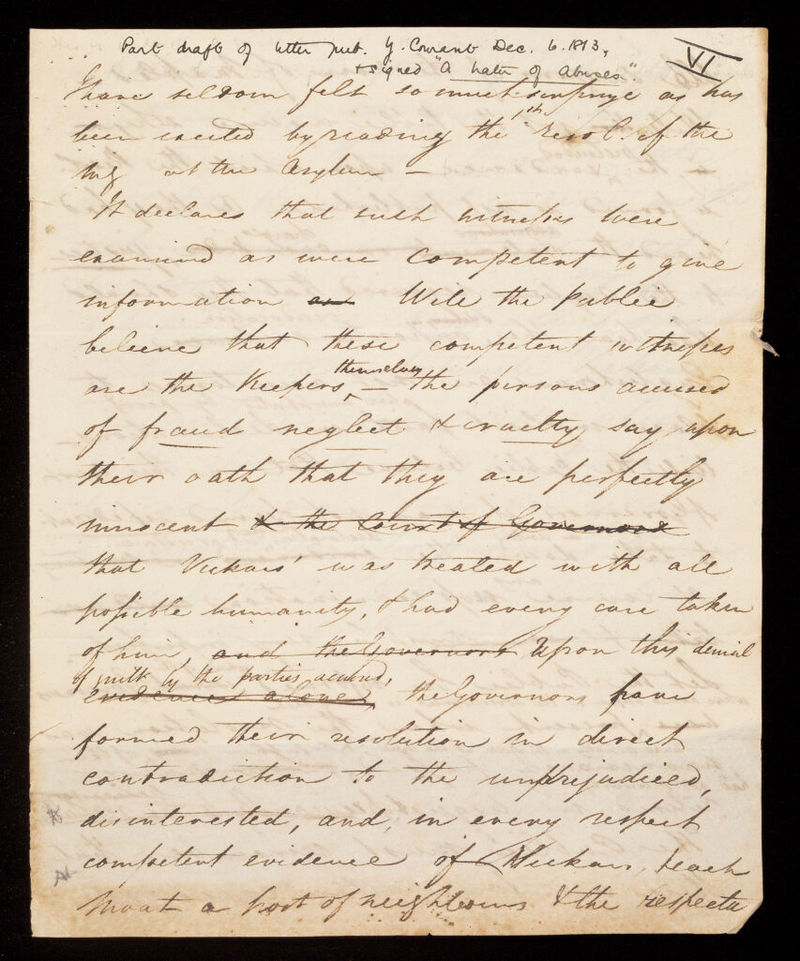 Part draft of letter pub. Y. Courant Dec. 6. 1813,
& signed "A hater of abuses".
VI
I have seldom felt so much surprize as has
been excited by reading the 1st resol. of the
mg at the Asylum —
It declares that such witnesses were
examined as were competent to give
information Will the Public
believe that these competent witnesses
are the Keepers themselves — the persons accused
of fraud neglect & cruelty say upon
their oath that they are perfectly
innocent & the Court of Governors
that Vickars' was treated with all
possible humanity, & had every care taken
of him, and the Governors Upon this denial
of guilt by the parties accused,
evidence alone, the Governors have
formed their resolution in direct
contradiction to the unprejudiced,
disinterested, and, in every respect
competent evidence of Vickars,
a host of neighbours & the respecta